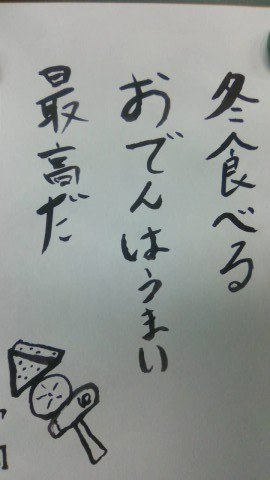 冬食べる
おでんはうまい
最高だ